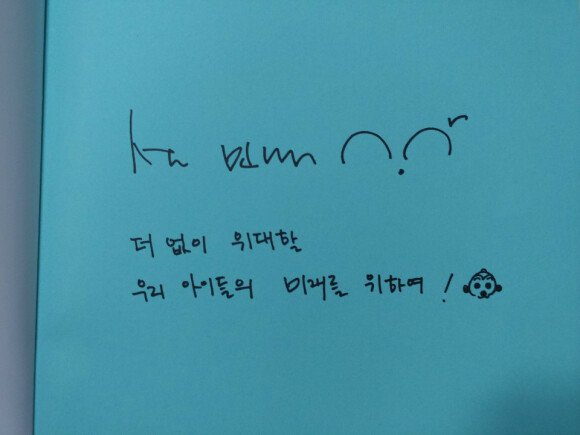 더 없이 위대할
우리 아이들의 미래를 위하여!